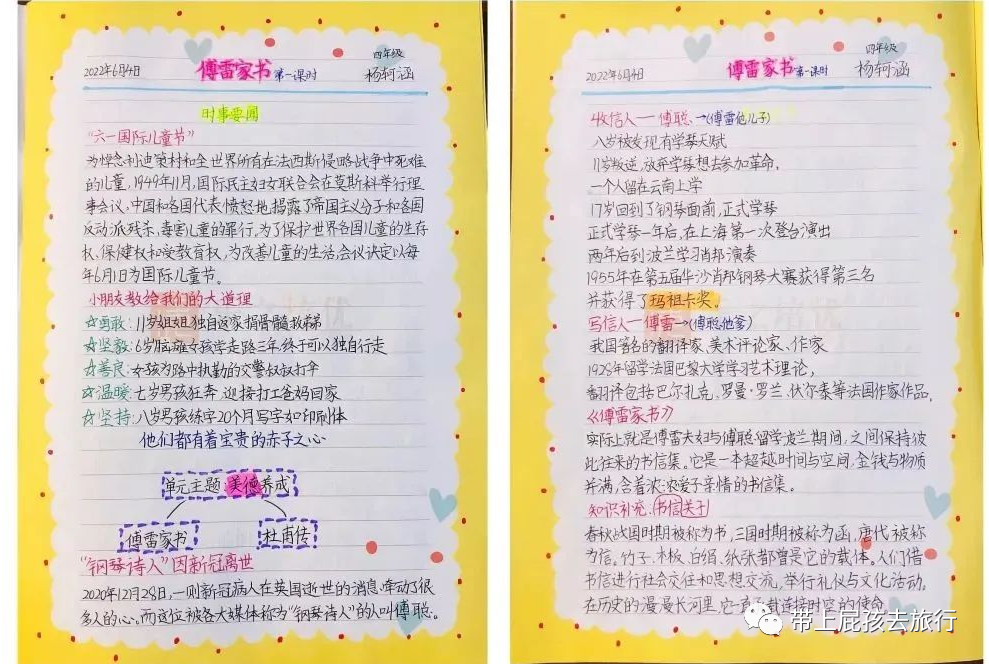 2022年6月4日
傅雷家书 第一课时
四年级
杨轲涵
时事要闻
"六一国际儿童节"
为悼念利迪策村和全世界所有在法西斯侵略战争中死难
的儿童,1949年11月,国际民主妇女联合会在莫斯科举行理
事会议,中国和各国代表愤怒地揭露了帝国主义分子和各国
反动派残杀、毒害儿童的罪行。为了保护世界各国儿童的生存
权、保健权和受教育权,为改善儿童的生活,会议决定以每
年6月1日为国际儿童节。
小朋友教给我们的大道理
☆勇敢:11岁姐姐独自返家捐骨髓救弟
☆坚毅:6岁脑瘫女孩学走路三年,终于可以独自行走
☆善良:女孩为路中执勤的交警叔叔打伞
☆温暖:七岁男孩狂奔 迎接打工爸妈回家
☆坚持:八岁男孩练字20个月写字如印刷体
他们都有着宝贵的赤子之心
单元主题:美德养成
傅雷家书
杜甫传
"钢琴诗人"因新冠离世
2020年12月28日,一则新冠病人在英国逝世的消息,牵动了很
多人的心。而这位被各大媒体称为"钢琴诗人"的人叫傅聪。
2022年6月4日
傅雷家书 第一课时
四年级
杨轲涵
收信人一傅聪→(傅雷他儿子)
八岁被发现有学琴天赋
11岁叛逆,放弃学琴想去参加革命,
一个人留在云南上学
17岁回到了钢琴面前,正式学琴
正式学琴一年后,在上海第一次登台演出
两年后到波兰学习肖邦演奏
1955年在第五届华沙肖邦钢琴大赛获得第三名
并获得了玛祖卡奖。
写信人一傅雷→(傅聪他爹)
我国著名的翻译家、美术评论家、作家
1928年留学法国巴黎大学学习艺术理论,
翻译包括巴尔扎克、罗曼·罗兰、伏尔泰等法国作家作品。
《傅雷家书》
实际上就是傅雷夫妇与傅聪留学波兰期间,之间保持彼
此往来的书信集。它是一本超越时间与空间,金钱与物质
并满含着浓浓爱子亲情的书信集。
知识补充:书信关于
春秋战国时期被称为书,三国时期被称为函,唐代被称
为信。竹子、木板、白绢、纸张都曾是它的载体。人们借
书信进行社会交往和思想交流,举行礼仪与文化活动。
在历史的漫漫长河里,它一直承载连接时空的使命
带上屁孩去旅行